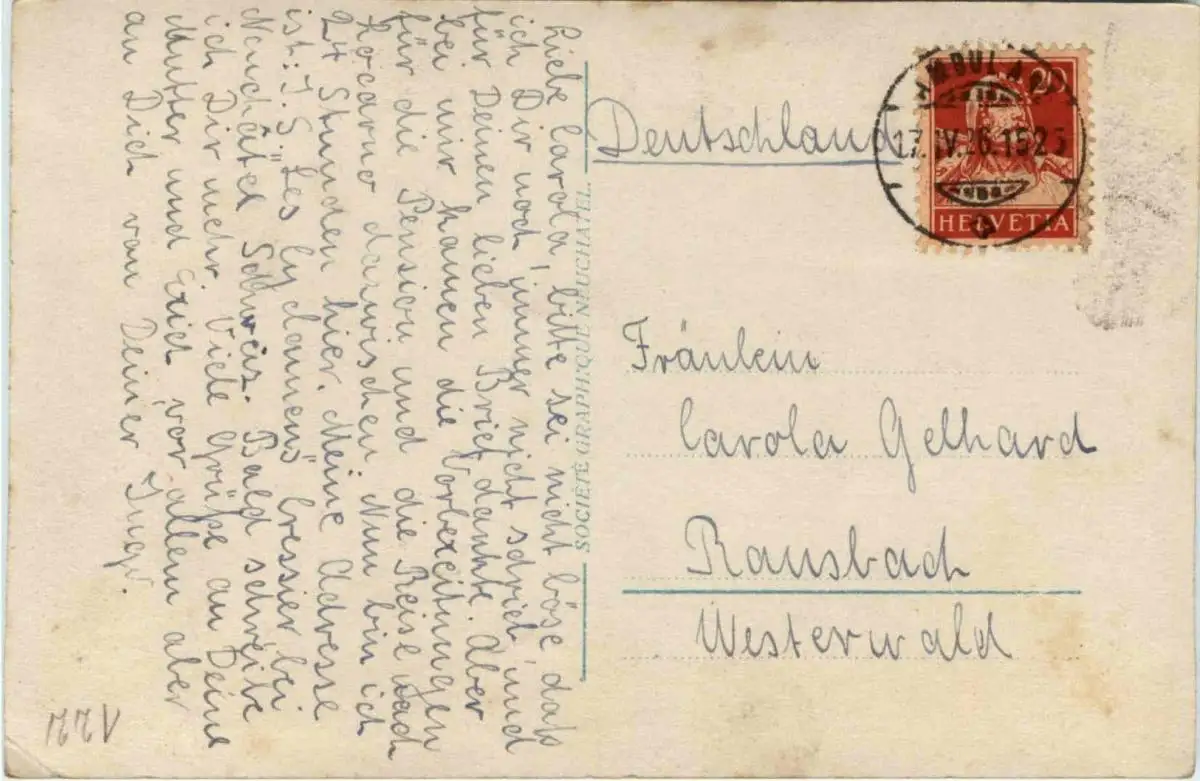 Liebe Carola, bitte sei nicht böse, daß
ich Dir noch immer nicht schrieb und
für Deinen lieben Brief dankte. Aber
bei mir kamen die Vorbereitungen
für die Pension und die Reise nach
Locarno dazwischen. Nun bin ich
24 Stunden hier. Meine Adresse
ist: I. S. "Les Cyclamens" Cressier bei
Neuchâtel Schweiz. Bald schreibe
ich Dir mehr. Viele Grüße an Deine
Mutter und Erich, vor allem aber
an Dich von Deiner Inge.
SOCIÉTÉ GRAPHIQUE NEUCHATEL
Deutschland
AMBULANT
17.IV.26.1523
20
HELVETIA
Fräulein
Carola Gelhard
Ransbach
Westerwald
1221